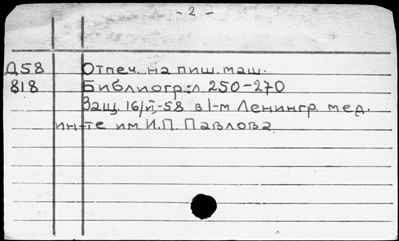 - 2 -
Д58 Отпеч. на пиш. маш.
818 Библиогр.: л. 250-270
Защ. 16/IV-58 в I-м Ленингр. мед.
ин-те им. И.П. Павлова.